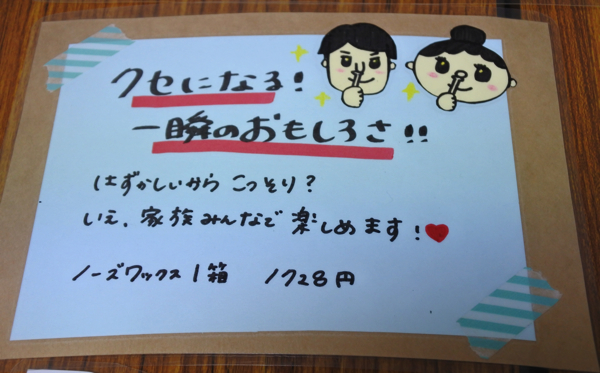 クセになる!
一瞬のおもしろさ!!
はずかしいから こっそり?
いえ、家族みんなで楽しめます!
ノーズワックス1箱 1728円